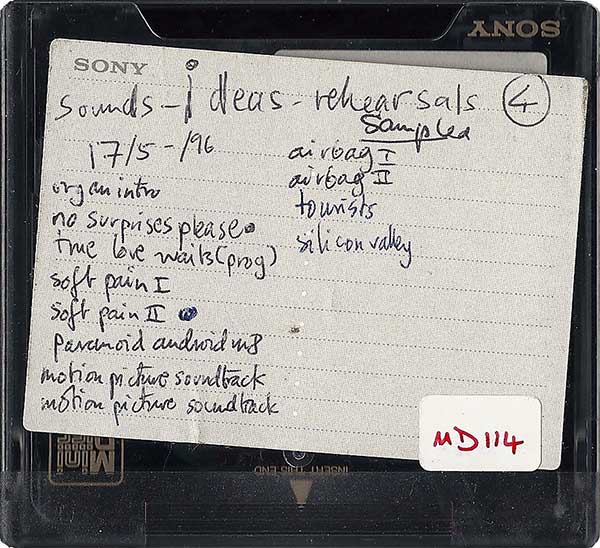 SONY
SONY
sounds - ideas - rehearsals 4
17/5-/96
organ intro
no surprises please
true love waits (prog)
soft pain I
soft pain II
paranoid android
motion picture soundtrack
motion picture soundtrack
sampled
airbag I
airbag II
tourists
silicon valley
MD114
Mini
INSERT THIS END